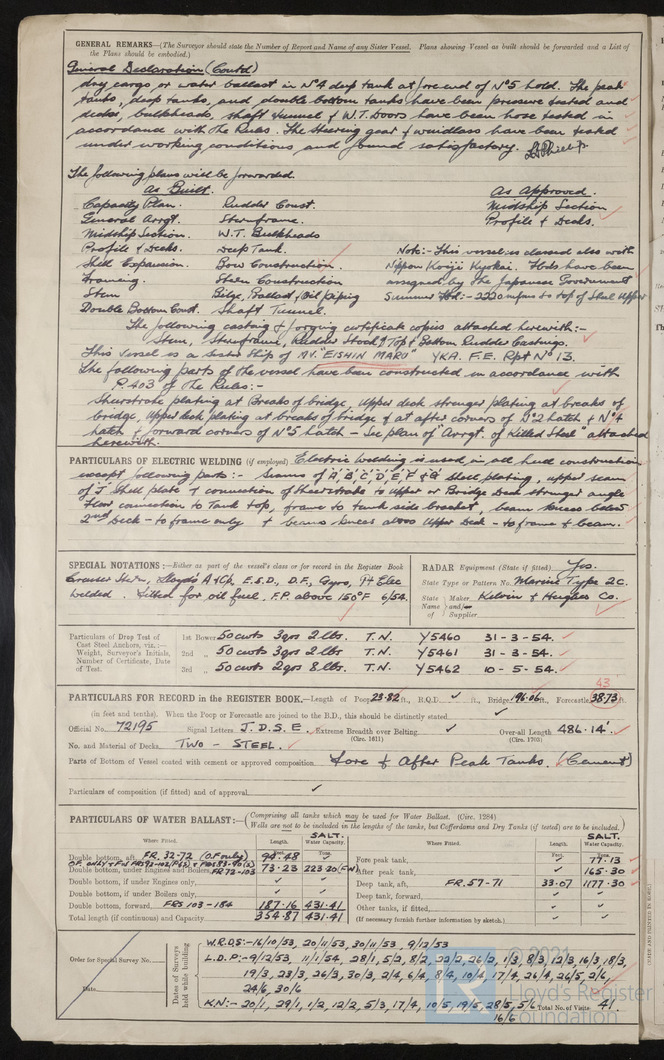 GENERAL REMARKS—(The Surveyor should state the Number of Report and Name of any Sister Vessel. Plans showing Vessel as built should be forwarded and a List of
the Plans should be embodied.)
General Declaration (Contd)
dry cargo or water ballast in Nº4 deep tank at fore end of Nº5 hold. The peak
tanks, deep tanks, and double bottom tanks have been pressure tested and
decks, bulkheads, shaft tunnel & W.T. Doors have been hose tested in
accordance with the Rules. The steering gear & windlass have been tested
under working conditions and found satisfactory.
The following plans will be forwarded.
As Built. As Approved.
Capacity Plan. Rudder Const. Midship Section
General Arrgt. Sternframe. Profile & Decks.
Midship Section. W.T. Bulkheads
Profile & Decks. Deep Tank. Note:- This vessel is classed also with
Shell Expansion. Bow Construction. Nippon Kaiji Kyokai. Fbds have been
Framing. Stern Construction assigned by the Japanese Government
Stem Bilge, Ballast & Oil piping Summer fbd:- 2220 m/m to top of Steel Upper
Double Bottom Const. Shaft Tunnel.
The following casting & forging certificate copies attached herewith:-
Stem, Sternframe, Rudder Stock & Top & Bottom Rudder Castings.
This Vessel is a Sister Ship of M.V. "EISHIN MARU" YKA. F.E. Rpt Nº 13.
The following parts of the vessel have been constructed in accordance with
P.403 of the Rules:-
Sheerstrake plating at Breaks of bridge, Upper deck stringer plating at breaks of
bridge, Upper deck plating at breaks of bridge & at after corners of Nº2 hatch & Nº4
hatch & forward corners of Nº5 hatch - See plan of "Arrgt. of Killed Steel" attached
herewith.
PARTICULARS OF ELECTRIC WELDING (if employed) Electric Welding is used in all hull construction
except following parts:- Seams of 'A' 'B' 'C' 'D' 'E' 'F' & 'G' Shell plating, upper seam
of 'J' Shell plate & connection of Sheerstrake to Upper or Bridge Deck stringer angle
Floor connection to Tank top, frame to tank side bracket, beam knees below
2nd Deck - to frame only & beams knees above Upper Deck - to frame & beam.
SPECIAL NOTATIONS:—Either as part of the vessel's class or for record in the Register Book
Cruiser Stern, Lloyd's A & CP, E.S.D., D.F., Gyro, Pt Elec
welded. Fitted for oil fuel. F.P. above 150°F 6/54.
RADAR Equipment (State if fitted) Yes.
State Type or Pattern No. Marine Type 2C.
State Name of Maker and/or Supplier Kelvin & Hughes Co.
Particulars of Drop Test of Cast Steel Anchors, viz.:— Weight, Surveyor's Initials, Number of Certificate, Date of Test.
1st Bower 50 cwts 3 qrs 2 lbs. T.N. Y5460 31-3-54.
2nd „ 50 cwts 3 qrs 2 lbs T.N. Y5461 31-3-54.
3rd „ 50 cwts 2 qrs 8 lbs. T.N. Y5462 10-5-54.
43
PARTICULARS FOR RECORD in the REGISTER BOOK.—Length of Poop 23.82 ft., R.Q.D. ft., Bridge 196.06 ft., Forecastle 38.73 ft.
(in feet and tenths). When the Poop or Forecastle are joined to the B.D., this should be distinctly stated.
Official No. 72195 Signal Letters J.D.S.E. Extreme Breadth over Belting (Circ. 1611) Over-all Length 486.14'. (Circ. 1703)
No. and Material of Decks TWO - STEEL.
Parts of Bottom of Vessel coated with cement or approved composition Fore & After Peak Tanks. (Cement)
Particulars of composition (if fitted) and of approval
PARTICULARS OF WATER BALLAST:—(Comprising all tanks which may be used for Water Ballast. (Circ. 1284)
Wells are not to be included in the lengths of the tanks, but Cofferdams and Dry Tanks (if tested) are to be included.)
Where Fitted. Length. Feet. SALT. Water Capacity. Tons. Where Fitted. Length. Feet. SALT. Water Capacity. Tons.
Double bottom, aft, FR. 32-72 (O.F only) 94.48 Fore peak tank, 77.13
Double bottom, under Engines and Boilers, FR 72-103 73.23 223.20 (FW) After peak tank, 165.30
Double bottom, if under Engines only, Deep tank, aft, FR. 57-71 33.07 1177.30
Double bottom, if under Boilers only, Deep tank, forward,
Double bottom, forward, FRS 103-184 187.16 431.41 Other tanks, if fitted,
Total length (if continuous) and Capacity 354.87 431.41 (If necessary furnish further information by sketch.)
Order for Special Survey No.
Date
Dates of Surveys held while building
W.R.D.S:- 16/10/53, 20/11/53, 30/11/53, 9/12/53
L.D.P:- 9/12/53, 11/1/54, 28/1, 5/2, 8/2, 20/2, 26/2, 1/3, 8/3, 12/3, 16/3, 18/3,
19/3, 23/3, 26/3, 30/3, 2/4, 6/4, 8/4, 10/4, 17/4, 26/4, 26/5, 2/6,
24/6, 30/6
K.N:- 20/1, 29/1, 1/2, 12/2, 5/3, 17/4, 10/5, 19/5, 28/5, 5/6 Total No. of Visits 41.
16/6
© 2021
Lloyd's Register
Foundation